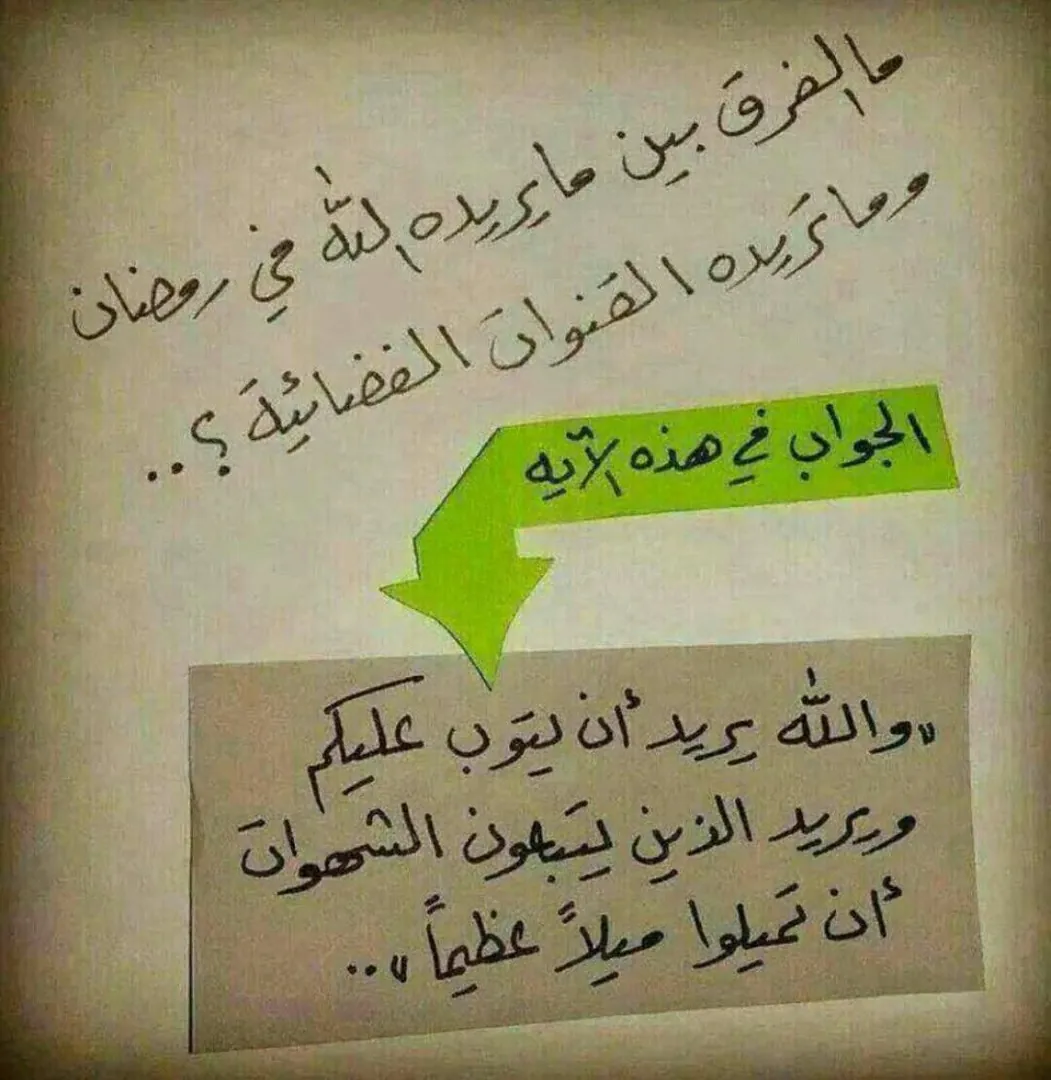 ما الفرق بين ما يريده الله في رمضان
وما تريده القنوات الفضائية ؟..
الجواب في هذه الآيه
«والله يريد أن يتوب عليكم
ويريد الذين يتبعون الشهوات
أن تميلوا ميلاً عظيماً»..